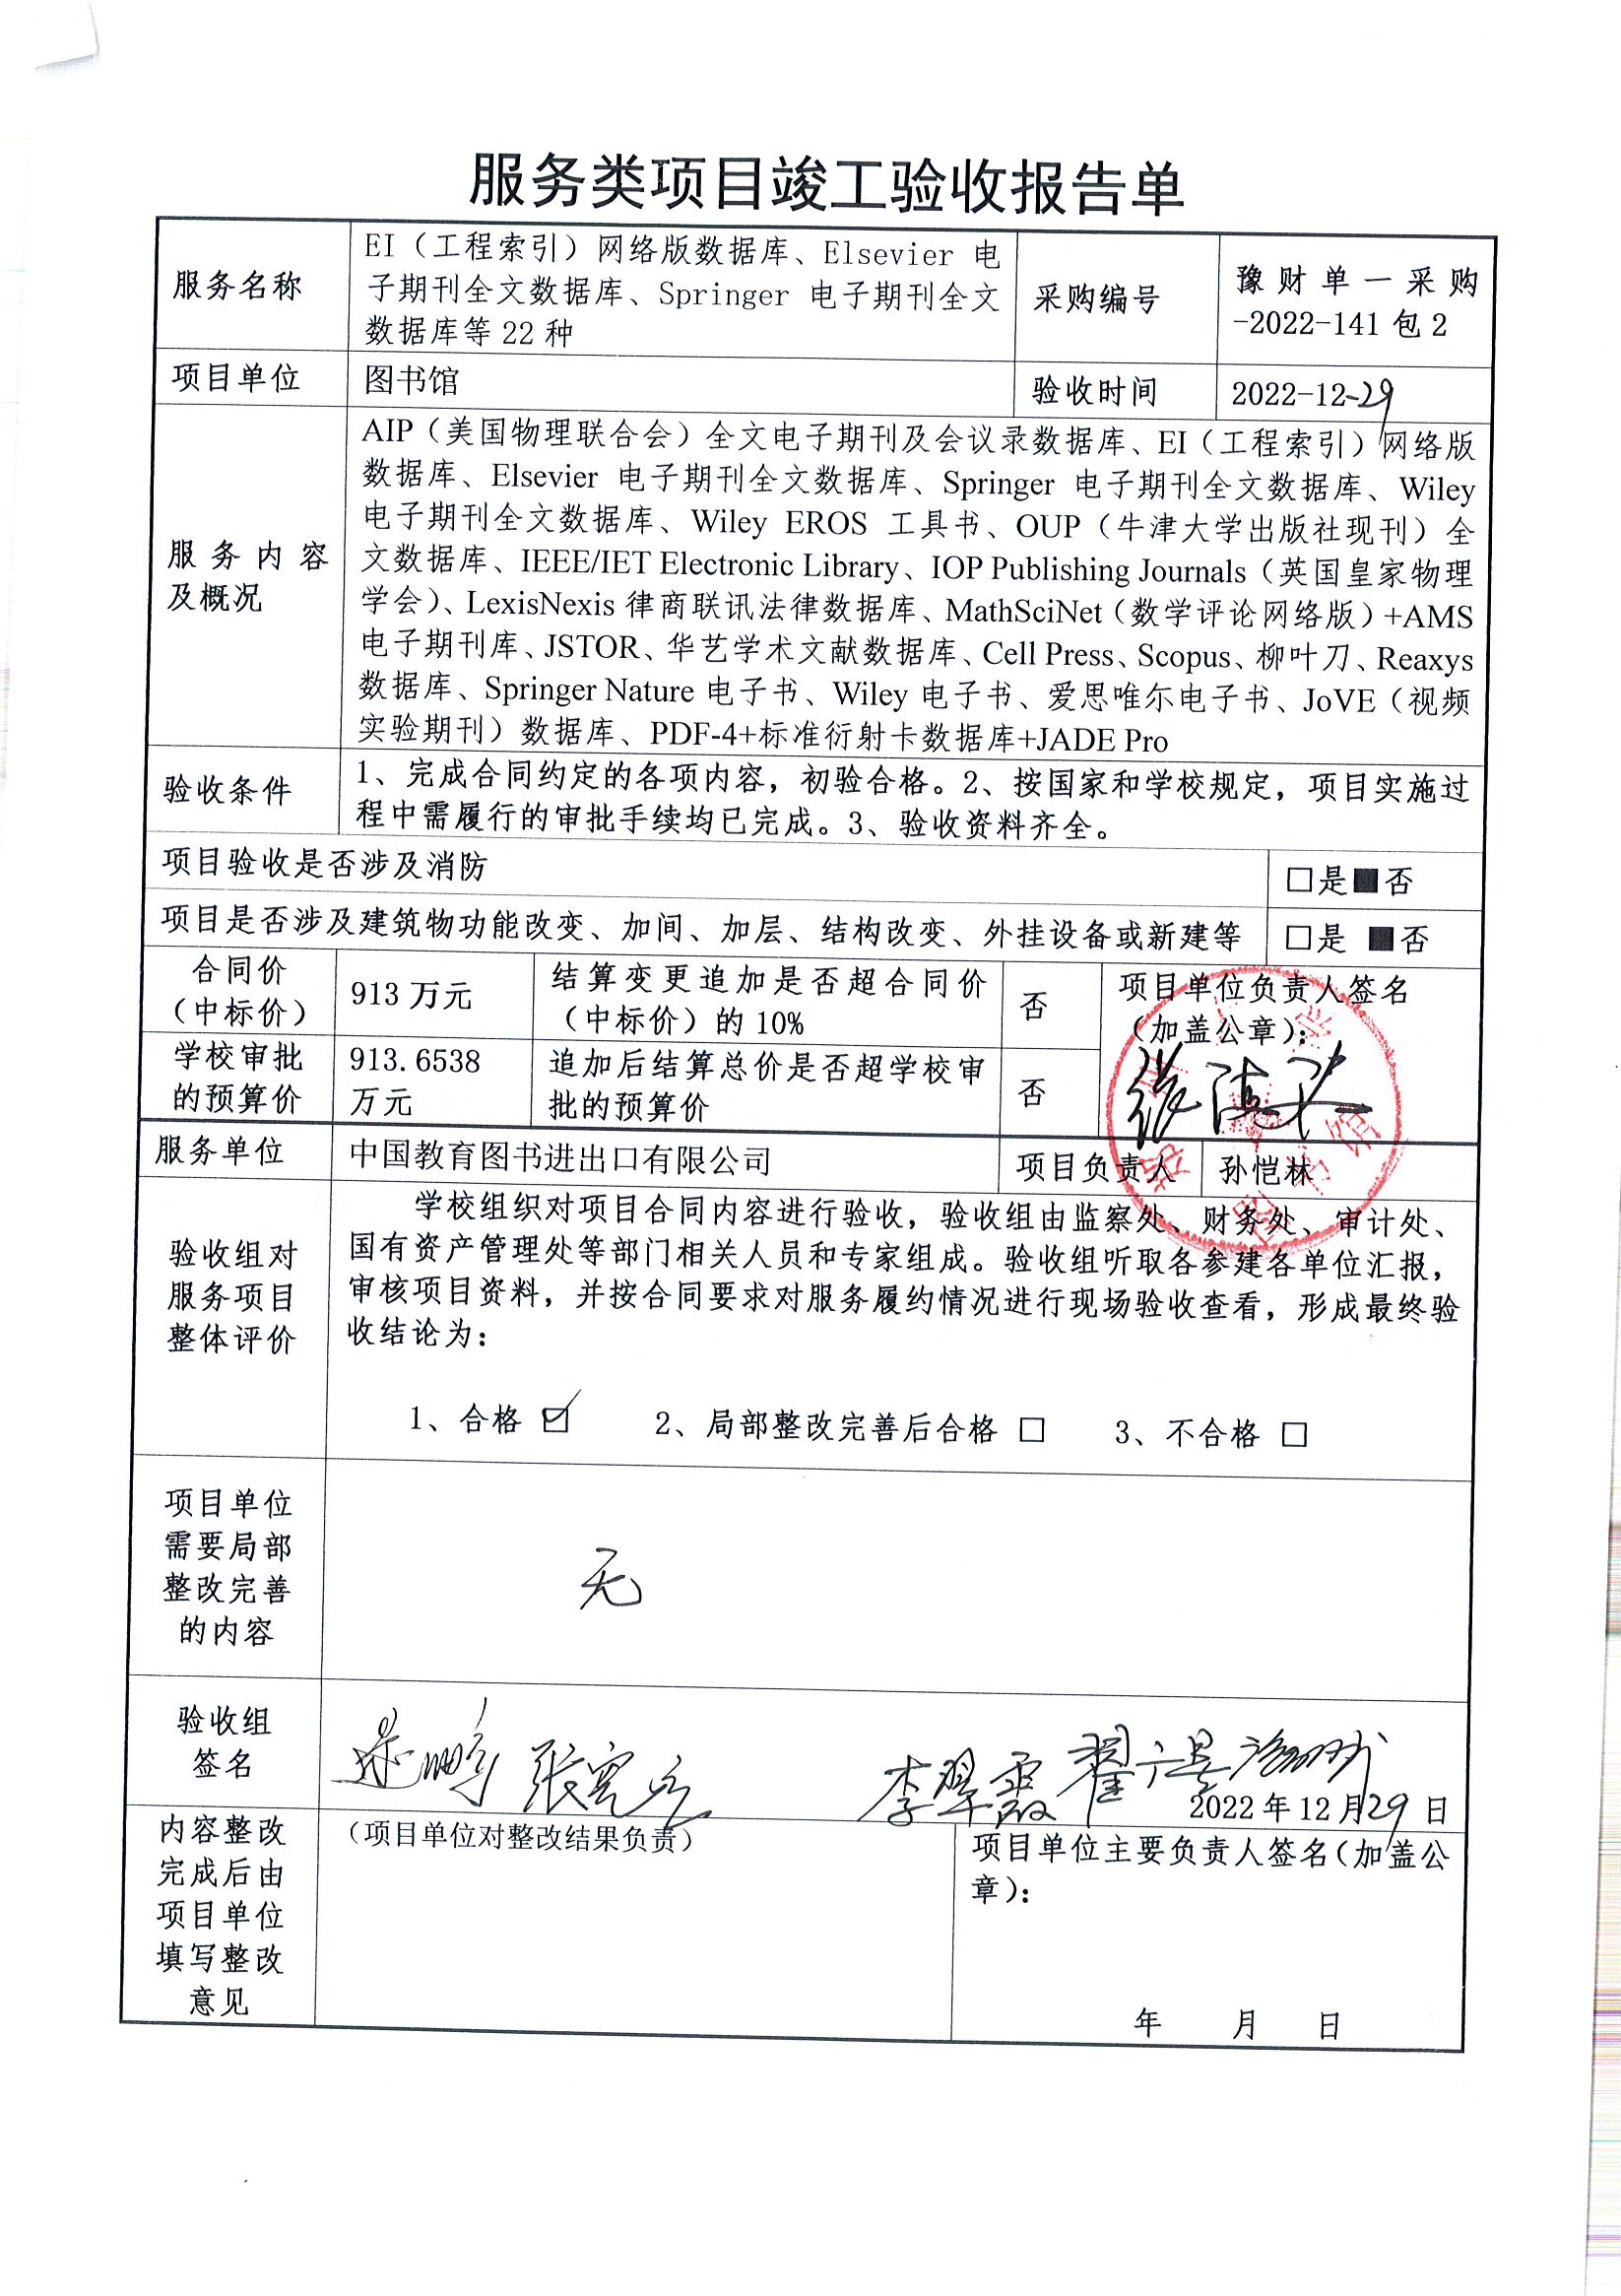 服务类项目竣工验收报告单
服务名称
EI（工程索引）网络版数据库、Elsevier 电
子期刊全文数据库、Springer 电子期刊全文
数据库等 22 种
采购编号
豫财单一采购
-2022-141 包 2
项目单位
图书馆
验收时间
2022-12-29
服务内容
及概况
AIP（美国物理联合会）全文电子期刊及会议录数据库、EI（工程索引）网络版
数据库、Elsevier 电子期刊全文数据库、Springer 电子期刊全文数据库、Wiley
电子期刊全文数据库、Wiley EROS 工具书、OUP（牛津大学出版社现刊）全
文数据库、IEEE/IET Electronic Library、IOP Publishing Journals（英国皇家物理
学会）、LexisNexis 律商联讯法律数据库、MathSciNet（数学评论网络版）+AMS
电子期刊库、JSTOR、华艺学术文献数据库、Cell Press、Scopus、柳叶刀、Reaxys
数据库、Springer Nature 电子书、Wiley 电子书、爱思唯尔电子书、JoVE（视频
实验期刊）数据库、PDF-4+标准衍射卡数据库+JADE Pro
验收条件
1、完成合同约定的各项内容，初验合格。2、按国家和学校规定，项目实施过
程中需履行的审批手续均已完成。3、验收资料齐全。
项目验收是否涉及消防
□是■否
项目是否涉及建筑物功能改变、加间、加层、结构改变、外挂设备或新建等
□是 ■否
合同价
（中标价）
913 万元
结算变更追加是否超合同价
（中标价）的 10%
否
项目单位负责人签名
（加盖公章）：
学校审批
的预算价
913.6538
万元
追加后结算总价是否超学校审
批的预算价
否
服务单位
中国教育图书进出口有限公司
项目负责人
孙恺林
验收组对
服务项目
整体评价
学校组织对项目合同内容进行验收，验收组由监察处、财务处、审计处、
国有资产管理处等部门相关人员和专家组成。验收组听取各参建各单位汇报，
审核项目资料，并按合同要求对服务履约情况进行现场验收查看，形成最终验
收结论为：
1、合格 ☑ 2、局部整改完善后合格 □ 3、不合格 □
项目单位
需要局部
整改完善
的内容
无
验收组
签名
李翠霞
2022 年 12 月 29 日
内容整改
完成后由
项目单位
填写整改
意见
（项目单位对整改结果负责）
项目单位主要负责人签名（加盖公
章）：
年 月 日